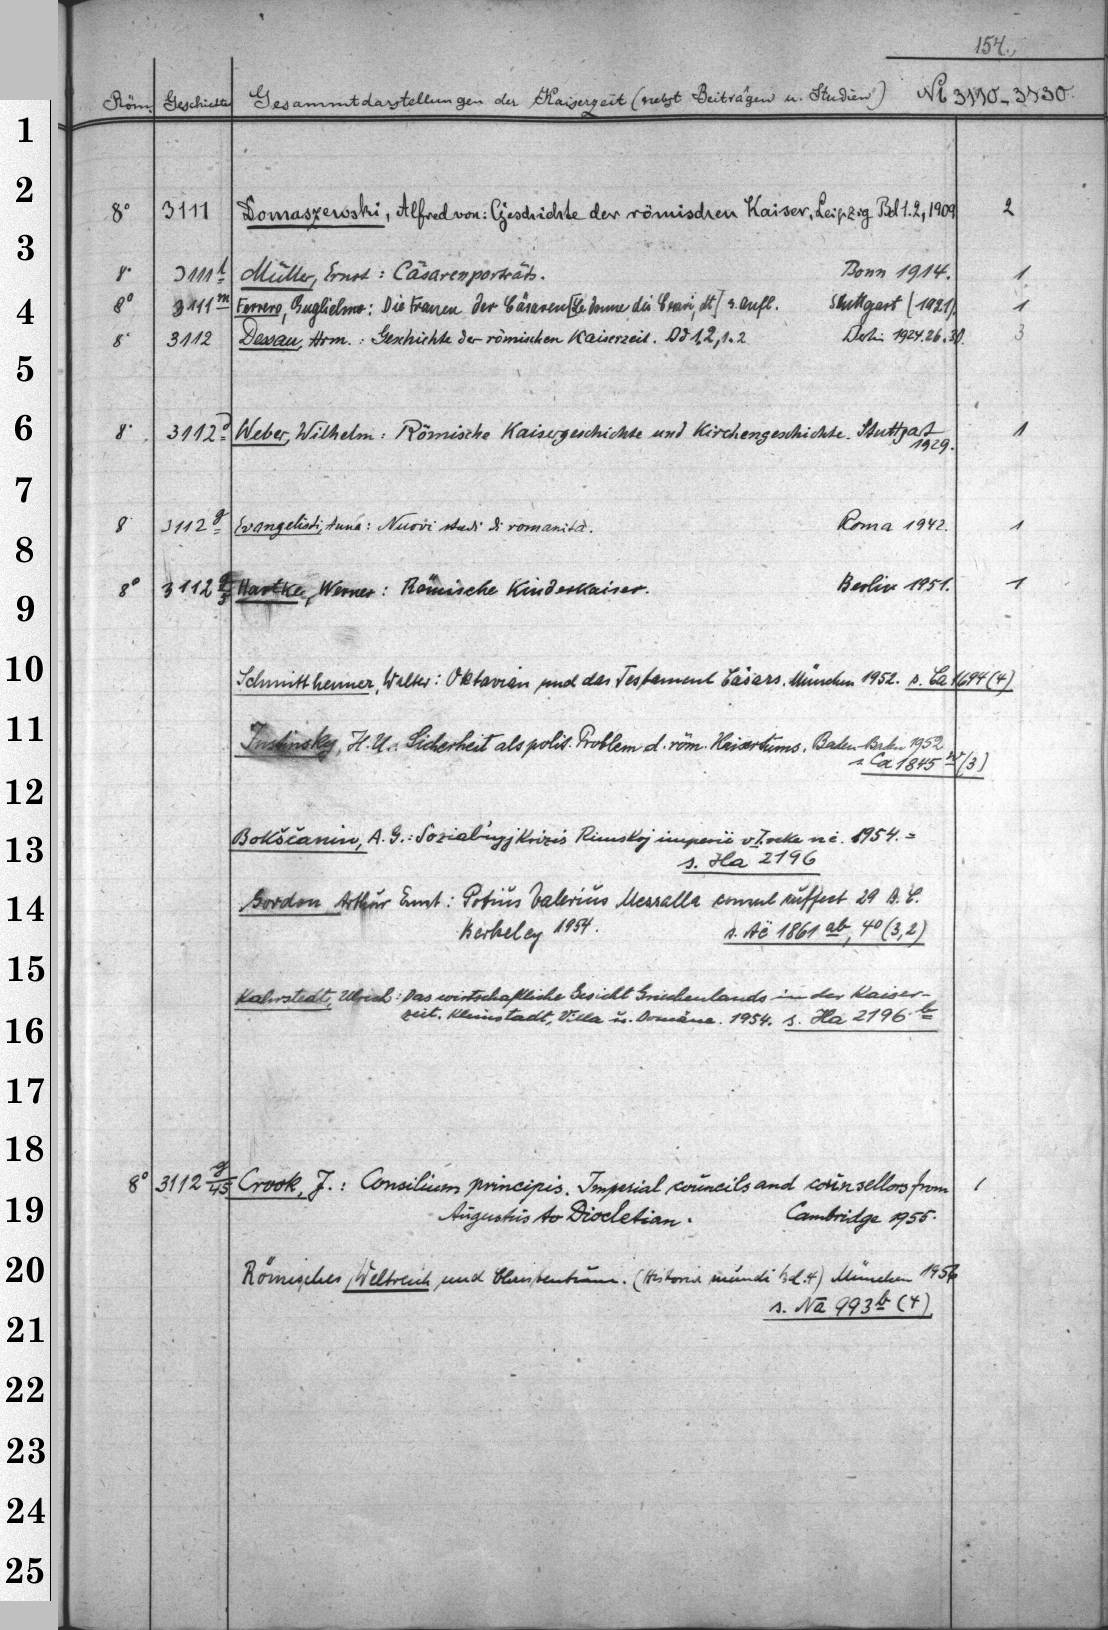 154.
Röm. Geschichte Gesammtdarstellungen der Kaiserzeit (nebst Beiträgen u. Studien) No 3110-3130.
1
2
8° 3111 Domaszewski, Alfred von: Geschichte der römischen Kaiser. Leipzig Bd 1.2, 1909 2
3
8° 3111 l Müller, Ernst: Cäsarenporträts. Bonn 1914. 1
4 8° 3111 m Ferrero, Guglielmo: Die Frauen der Cäsaren [Le donne dei Cesari, dt] 3. Aufl. Stuttgart (1921). 1
8° 3112 Dessau, Hrm.: Geschichte der römischen Kaiserzeit. Bd 1,2,1.2 Berlin 1924.26.30. 3
5
6 8° 3112 d Weber, Wilhelm: Römische Kaisergeschichte und Kirchengeschichte. Stuttgart 1
1929.
7
8 3112 g Evangelisti, Anna: Nuovi studi di romanità. Roma 1942. 1
8
8° 3112 g/3 Hartke, Werner: Römische Kinderkaiser. Berlin 1951. 1
9
10 Schmitthenner, Walter: Oktavian und das Testament Cäsars. München 1952. s. Ca 1694 (4)
11 Instinsky, H.U.: Sicherheit als polit. Problem d. röm. Kaisertums. Baden-Baden 1952
s. Ca 1845 (3)
12
13 Bokščanin, A. G.: Sozial'nyj krizis Rimskoj imperii v I. veke n.ė. 1954. =
s. Ha 2196
14 Gordon Arthur Ernst: Potius Valerius Messalla consul suffect 29 B.C.
Berkeley 1954. s. Ac 1861 ab, 4° (3,2)
15
Kahrstedt, Ulrich: Das wirtschaftliche Gesicht Griechenlands in der Kaiser-
16 zeit. Kleinstadt, Villa u. Domäne. 1954. s. Ha 2196 b
17
18
8° 3112 g/45 Crook, J.: Consilium principis. Imperial councils and counsellors from 1
19 Augustus to Diocletian. Cambridge 1955.
20 Römisches Weltreich und Christentum. (Historia mundi Bd. 4) München 1956
s. Na 993 b (4)
21
22
23
24
25